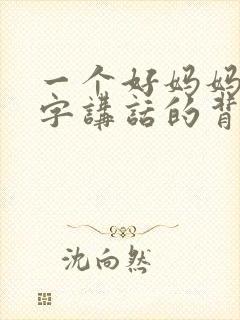 一个好妈妈
字講話的背
沈向然